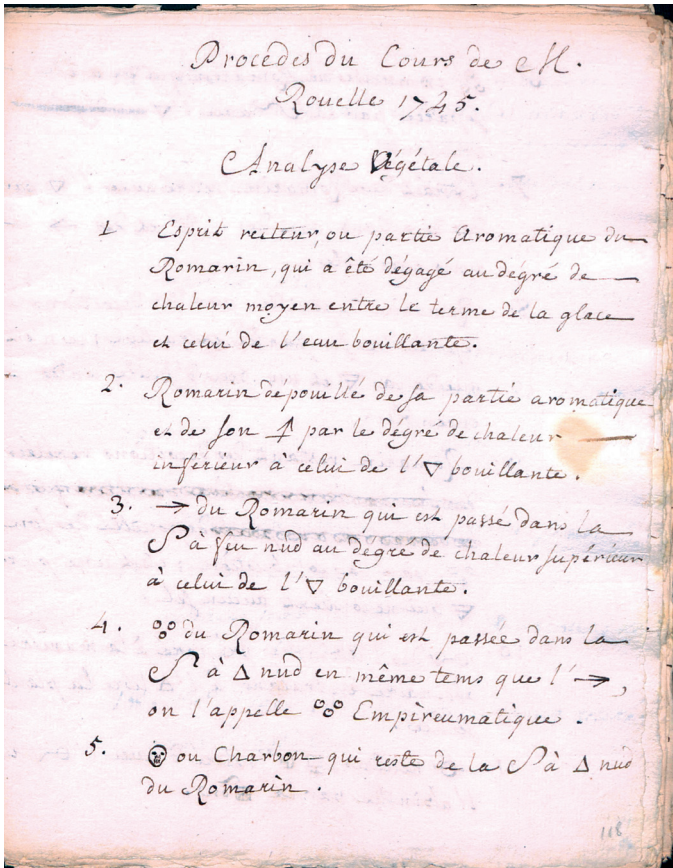 Procedés du Cours de M.
Rouelle 1745.
Analyse Végétale.
1 Esprit recteur, ou partie Aromatique du
Romarin, qui a êté dégagé au dégré de
chaleur moyen entre le terme de la glace
et celui de l'eau bouillante.
2. Romarin dépouillé de sa partie aromatique
et de son 🜍 par le dégré de chaleur
inférieur à celui de l'▽ bouillante.
3. → du Romarin qui est passé dans la
à feu nud au dégré de chaleur supérieur
à celui de l'▽ bouillante.
4. du Romarin qui est passée dans la
à △ nud en même tems que l'→,
on l'appelle Empireumatique.
5. 💀 ou Charbon qui reste de la à △ nud
du Romarin.
118